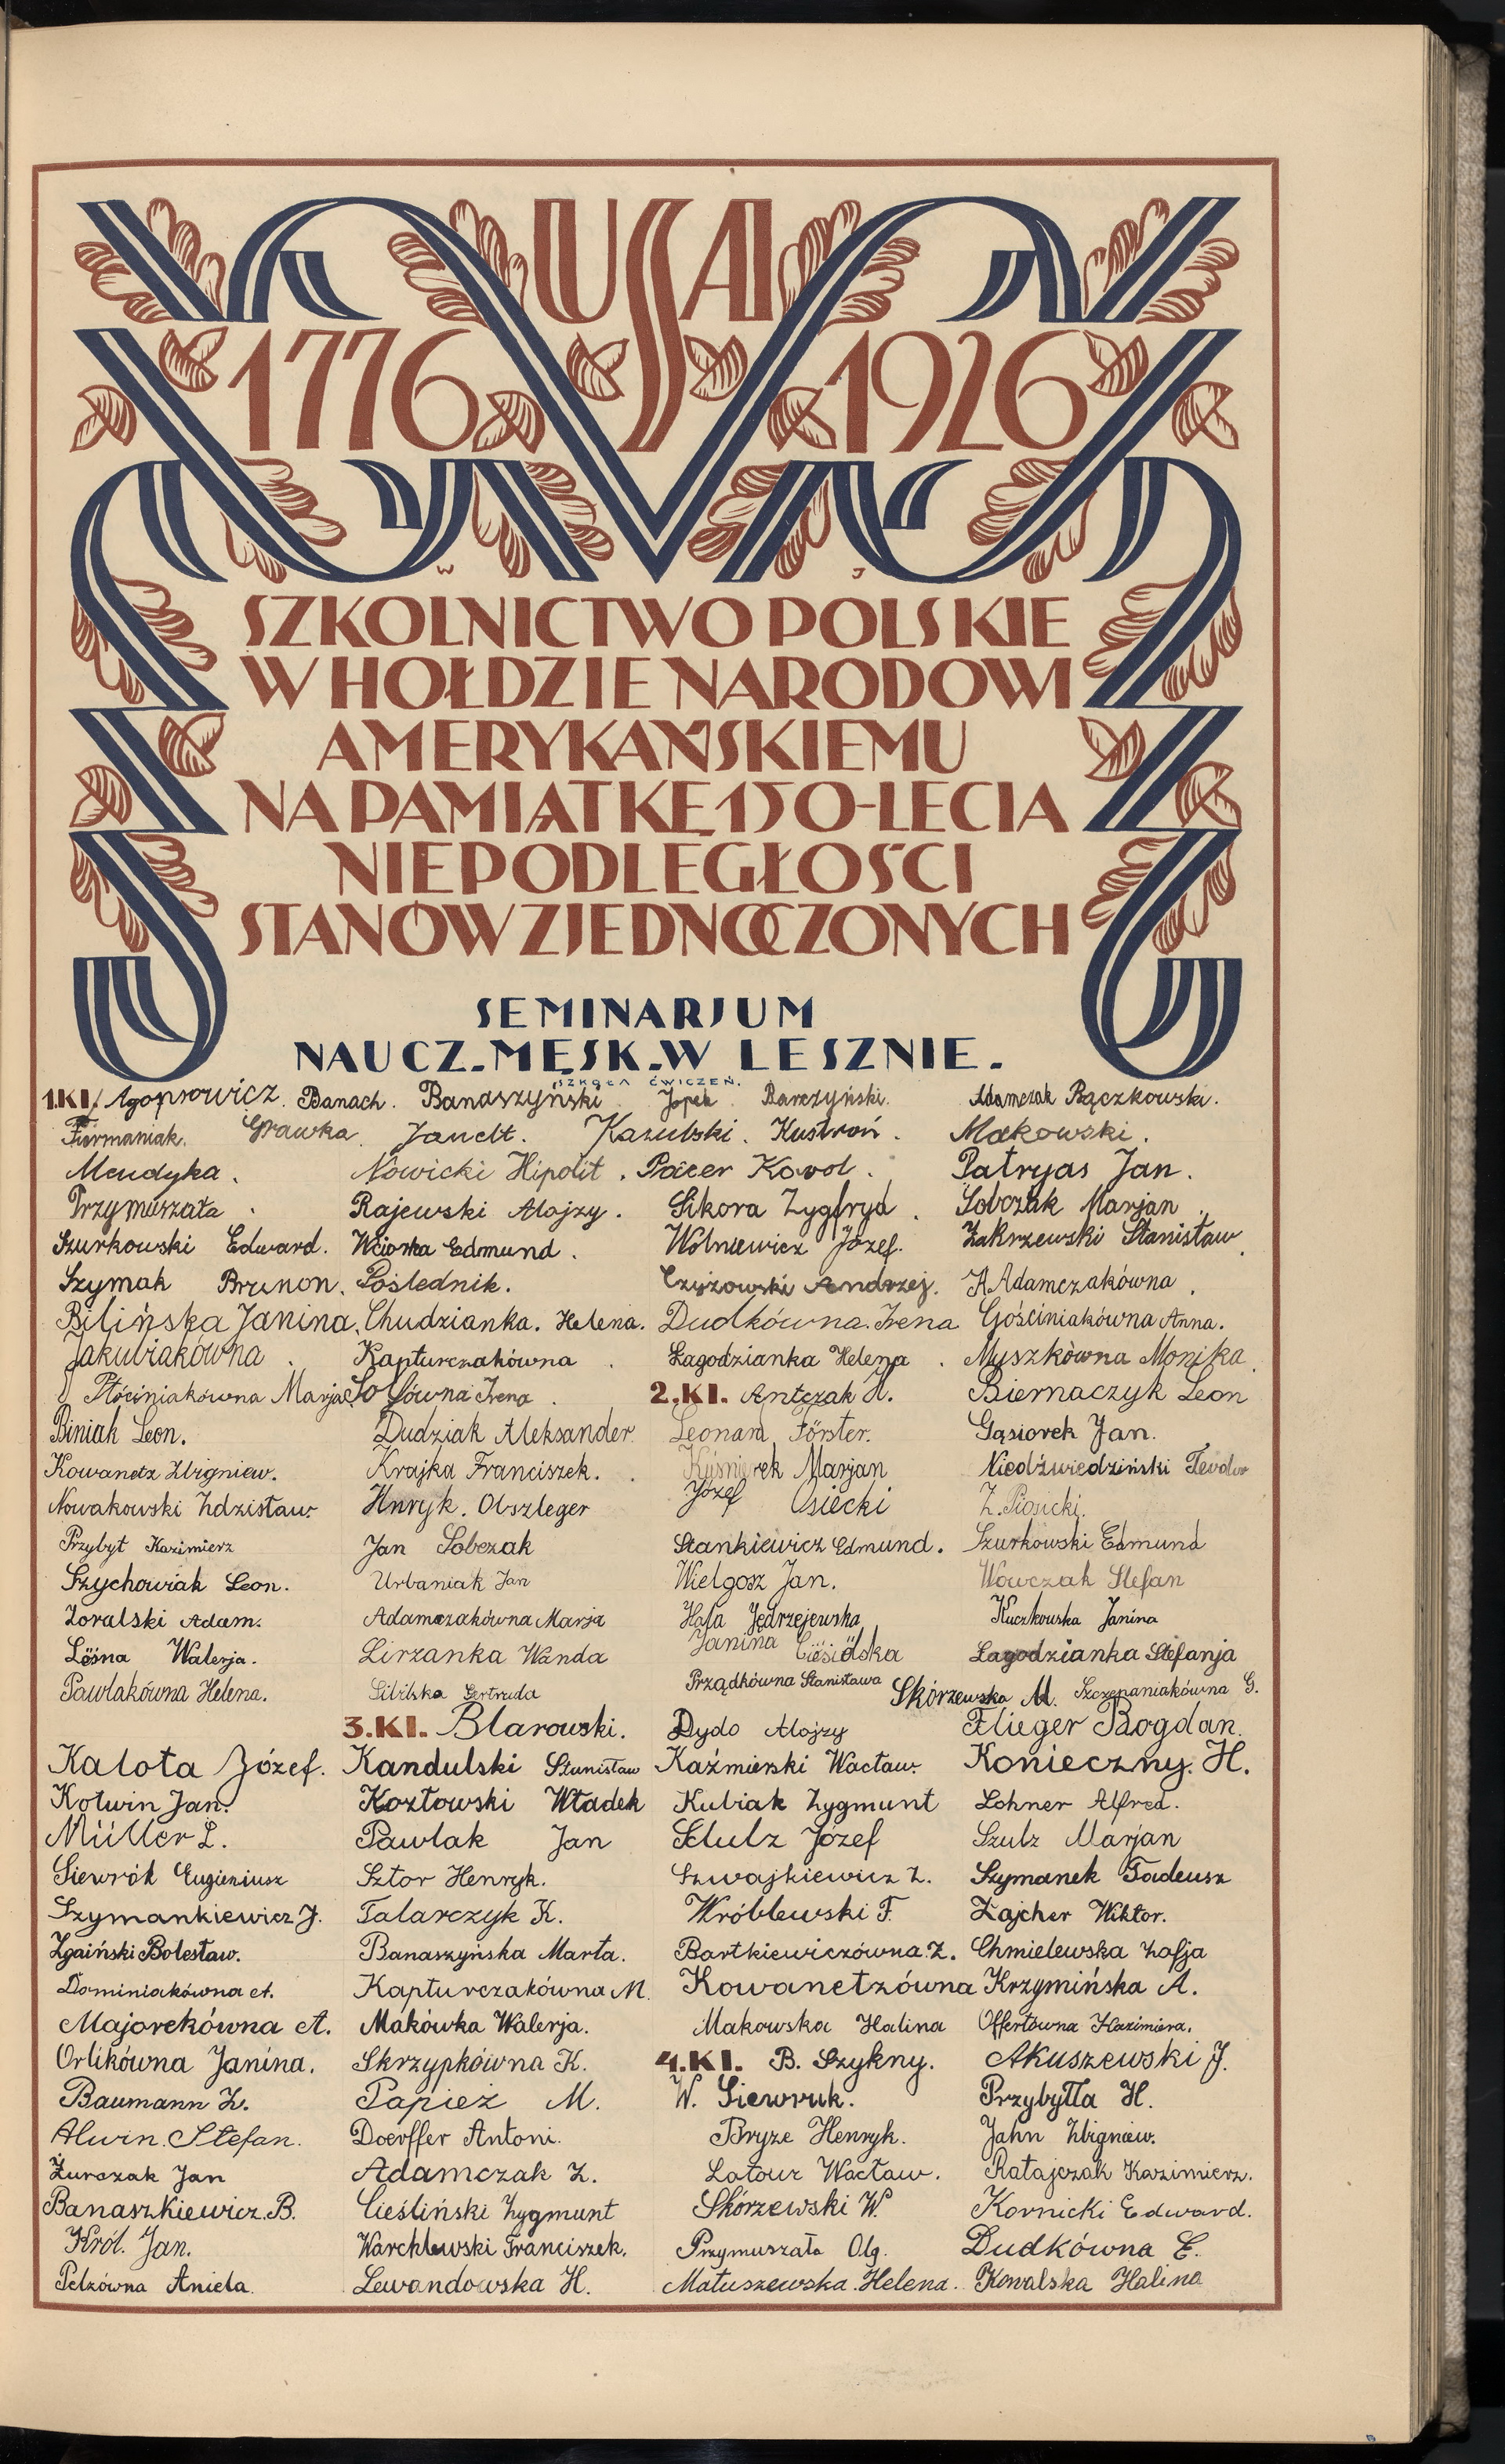 USA
1776 1926
W J
SZKOLNICTWO POLSKIE
W HOŁDZIE NARODOWI
AMERYKAŃSKIEMU
NA PAMIĄTKĘ 150-LECIA
NIEPODLEGŁOŚCI
STANÓW ZJEDNOCZONYCH
SEMINARJUM
NAUCZ. MĘSK. W LESZNIE.
SZKOŁA ĆWICZEŃ.
1.Kl. Agopsowicz. Banach. Banaszyński Jopek Barczyński. Adamczak Bączkowski.
Furmaniak. Grawka Janelt. Kazubski. Kustroń. Makowski.
Mendyka. Nowicki Hipolit. Pacer Karol. Patryas Jan.
Przymuszała Rajewski Alojzy. Sikora Zygfryd. Sobczak Marjan.
Szurkowski Edward. Wciorka Edmund. Wolniewicz Józef. Zakrzewski Stanisław.
Szymak Brunon. Poślednik. Czyżowski Andrzej. K. Adamczakówna.
Bilińska Janina. Chudzianka. Helena. Dudkówna. Irena Gościniakówna Anna.
Jakubiakówna. Kapturczakówna. Łagodzianka Helena. Myszkówna Monika.
Płóciniakówna Marja Irena. 2.Kl. Antczak H. Biernaczyk Leon
Biniak Leon. Dudziak Aleksander. Leonard Förster. Gąsiorek Jan.
Kowanetz Zbigniew. Krajka Franciszek. Kuśnierek Marjan Niedźwiedziński Teodor
Nowakowski Zdzisław. Hnryk. Obszleger Józef Osiecki Z. Piosicki.
Przybył Kazimierz Jan Sobczak Stankiewicz Edmund. Szurkowski Edmund
Szychowiak Leon. Urbaniak Jan Wielgosz Jan. Wowczak Stefan
Zoralski Adam. Adamczakówna Marja Hala Jędrzejewska Kuczkowska Janina
Walerja. Lirzanka Wanda Janina Ciesiolska Łagodzianka Stefanja
Pawlakówna Helena. Gertruda Prządkówna Stanisława Skórzewska M. Szczepaniakówna G.
3.Kl. Blarowski. Dydo Alojzy Flieger Bogdan.
Kalota Józef. Kandulski Stanisław Kaźmierski Wacław. Konieczny. H.
Kotwin Jan. Kozłowski Władek Kubiak Zygmunt Lohner Alfred.
Müller L. Pawlak Jan Szulz Józef Szulz Marjan
Siewrók Eugieniusz Sztor Henryk. Szwajkiewicz Z. Szymanek Tadeusz
Szymankiewicz J. Talarczyk K. Wróblewski F. Zajcher Wiktor.
Zgaiński Bolesław. Banaszyńska Marta. Bartkiewiczówna. Z. Chmielewska Zofja
Dominiakówna A. Kapturczakówna M. Kowanetzówna Krzymińska A.
Majorekówna A. Makówka Walerja. Makowska Halina Offertówna Kazimiera.
Orlikówna Janina. Skrzypkówna K. 4.Kl. B. Szykny. Akuszewski J.
Baumann Z. Papież M. W. Siewruk. Przybyłła H.
Alwin. Stefan. Doerffer Antoni. Bryze Henryk. Jahn Zbigniew.
Żurczak Jan Adamczak Z. Latour Wacław. Ratajczak Kazimierz.
Banaszkiewicz. B. Cieśliński Zygmunt Skórzewski W. Kornicki Edward.
Król. Jan. Warchlewski Franciszek. Przymuszała Olg. Dudkówna C.
Pelzówna Aniela. Lewandowska H. Matuszewska. Helena. Kowalska Halina